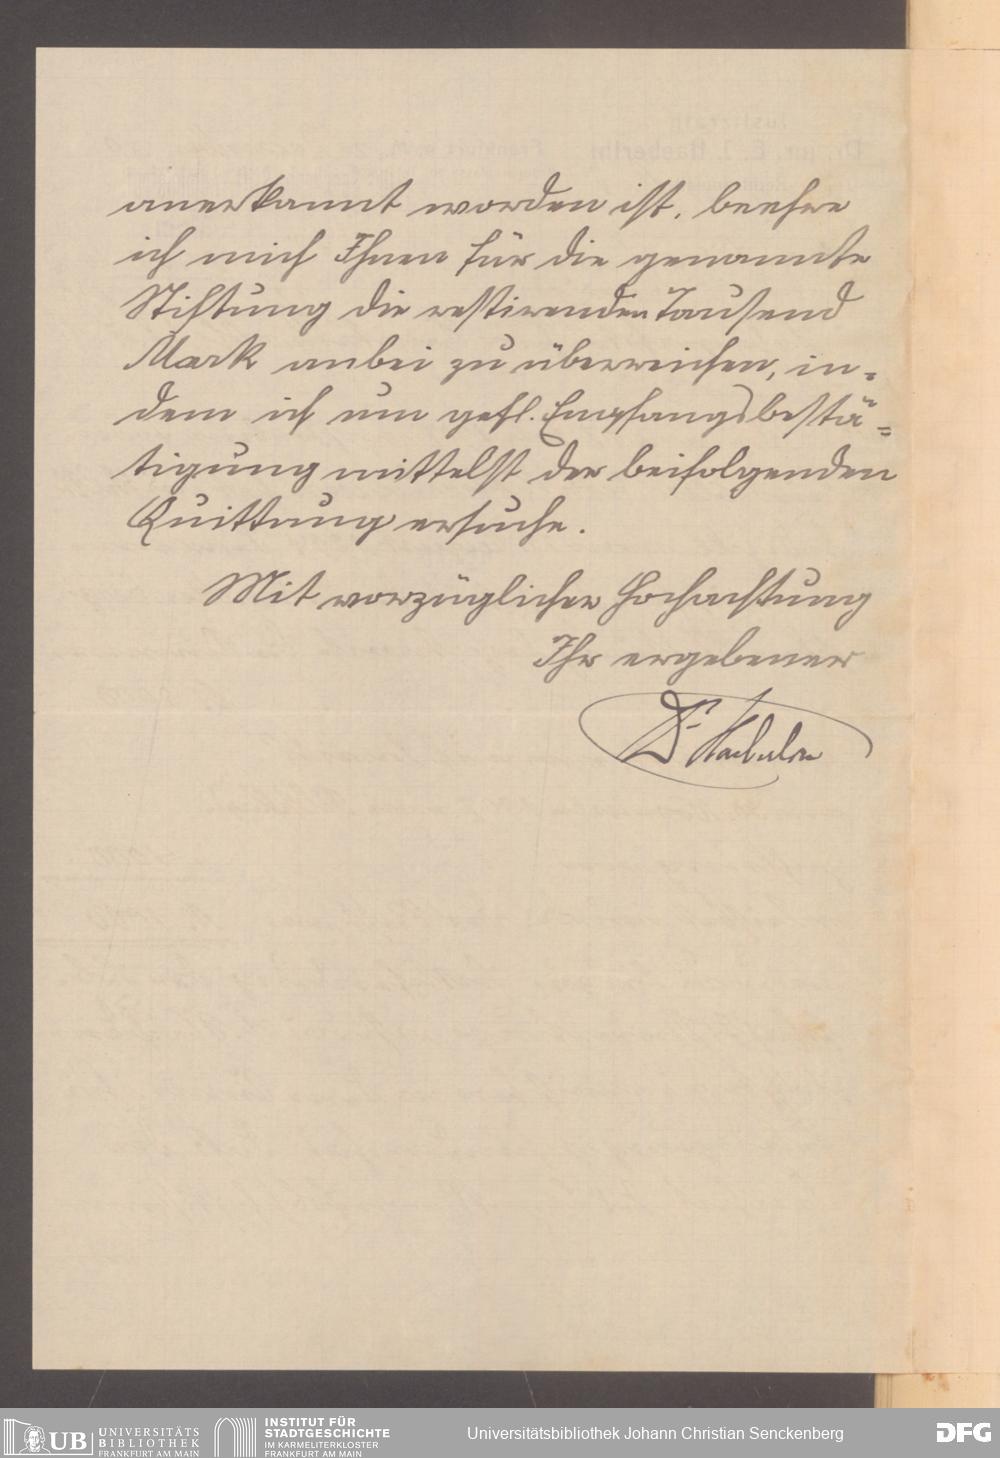 anerkannt worden ist, beehre
ich mich Ihnen für die genannte
Stiftung die restirenden Tausend
Mark anbei zu überreichen, in=
dem ich um gefl. Empfangsbestä=
tigung mittelst der beifolgenden
Quittung ersuche.
Mit vorzüglicher Hochachtung
Ihr ergebener
Dr. Haeberlin
UB UNIVERSITÄTS
BIBLIOTHEK
FRANKFURT AM MAIN
INSTITUT FÜR
STADTGESCHICHTE
IM KARMELITERKLOSTER
FRANKFURT AM MAIN
Universitätsbibliothek Johann Christian Senckenberg
DFG